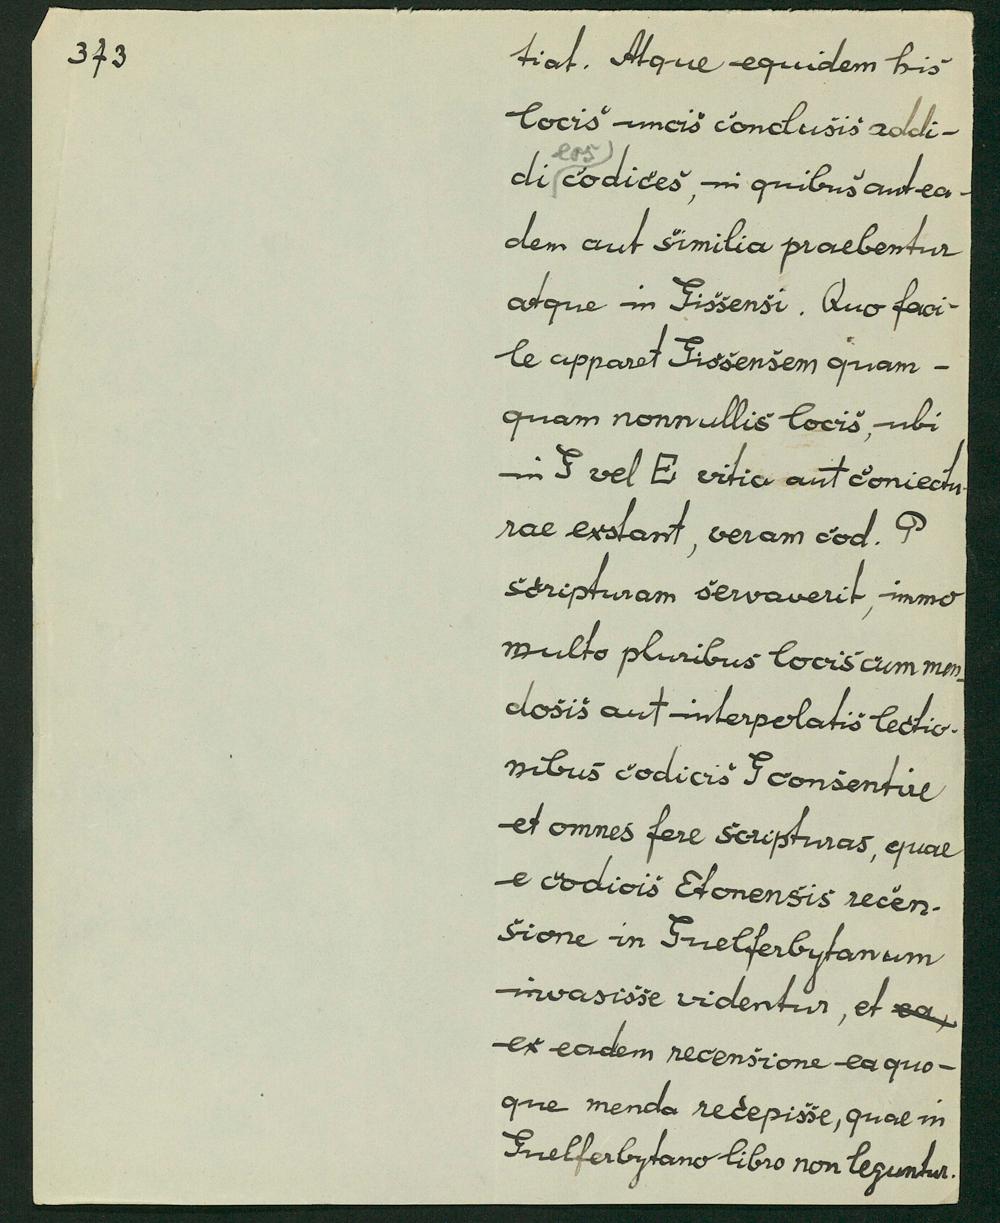 373
tiat. Atque equidem his
locis uncis conclusis addi-
eos
di codices, in quibus aut ea-
dem aut similia praebentur
atque in Gissensi. Quo faci-
le apparet Gissensem quam-
quam nonnullis locis, ubi
in G vel E vitia aut coniectu-
rae exstant, veram cod. P
scripturam servaverit, immo
multo pluribus locis cum men-
dosis aut interpolatis lectio-
nibus codicis G consentire
et omnes fere scripturas, quae
e codicis Etonensis recen-
sione in Guelferbytanum
invasisse videntur, et ea,
ex eadem recensione ea quo-
que menda recepisse, quae in
Guelferbytano libro non leguntur.